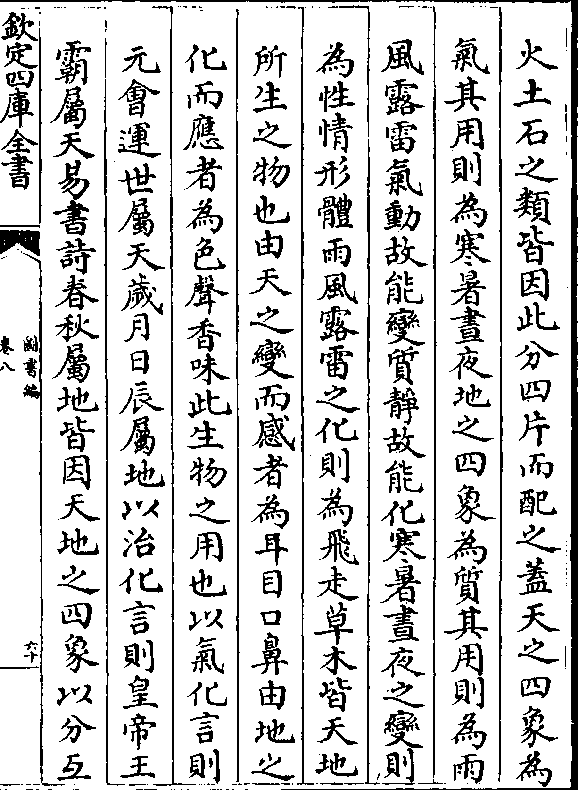 火土石之類皆因此分四片而配之蓋天之四象為
氣其用則為寒暑晝夜地之四象為質其用則為雨
風露雷氣動故能變質靜故能化寒暑晝夜之變則
為性情形體雨風露雷之化則為飛走草木皆天地
所生之物也由天之變而感者為耳目口鼻由地之
化而應者為色聲香味此生物之用也以氣化言則
元會運世屬天歲月日辰屬地以治化言則皇帝王
霸屬天易書詩春秋屬地皆因天地之四象以分互
欽定四庫全書
圖書編
卷八
六十